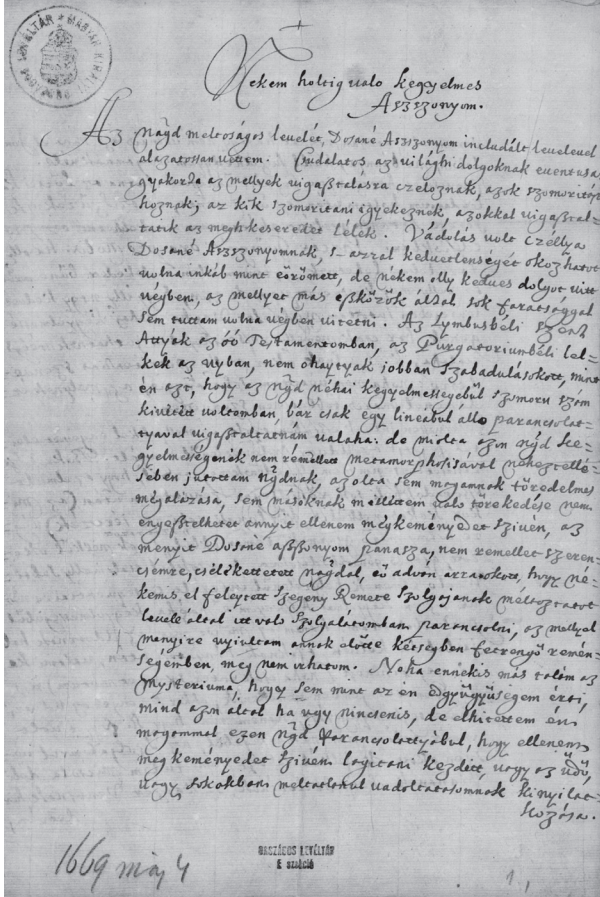 MAGYAR KIRÁLYI
Nekem holtig valo kegyelmes
Aszszonyom.
Az nagd meltoságos levelét, Dosané Aszszonyom includált levelevel
alázatossan vöttem. Csudalatos az világhi dolgoknak eventusa
gyakorta az mellyek vigasztalásra czéloznak, azok szomoritást
hoznak; az kik szomoritani igyekeznek, azokkal vigasztal-
tatik az megh keseredet lélek. Vádolás volt czéllya
Dosané Aszszonyomnak, s azzal kedvetlenségét okozhatot
volna inkáb mint eörömett, de nékem olly kedves dolgot vitt
végben, az mellyet más eszközök által sok faratsággal
sem tuttam volna végben vitetni. Az Lymbusbéli szent
Attyák az óó Testamentomban, az Purgatoriumbéli lel-
kek az uyban, nem óhaytyák jobban szabadulásokott, mint
én azt, hogy az ngd néhai kegyelmessegébül szomoru szám
kivetett voltomban, bár csak egy lineábul álló parancsolat-
tyával vigasztaltatnám valaha: de miolta azon ngd ke-
gyelmeségenek nem rémellett metamorphosisával neheztellé-
sében jutottam ngdnak, az olta sem magamnak töredelmes
megalázása, sem másoknak mellettem valo törekedése nem
engesztelhetet annyit ellenem megkeményedet sziven, az
menyit Dosané aszszonyom panasza, nem remellet szeren-
csémre, cselekettetett nagddal, eö adván arra okott, hogy né-
kemis el feleytett szegény Remete szolgájanak méltoztatot
levele által itt valo szolgalatomban parancsolni, az mellyel
menyire ujultam annak elötte kétségben fetrengö remén-
ségemben, meg nem irhatom. Noha ennékis más talám az
mysteriuma, hogy sem mint az én együgyüségem érti,
mind azon által ha ugy nincsenis, de elhitettem én
magammal ezen ngd Parancsolattyábul, hogy ellenem
meg keményedet szivén lagitani kezdett, vagy az üdö,
vagy sokakban meltatlanul vadoltatasomnak kinyilat-
kozása.
1669 máj 4
ORSZÁGOS LEVÉLTÁR
E SZEKCIÓ